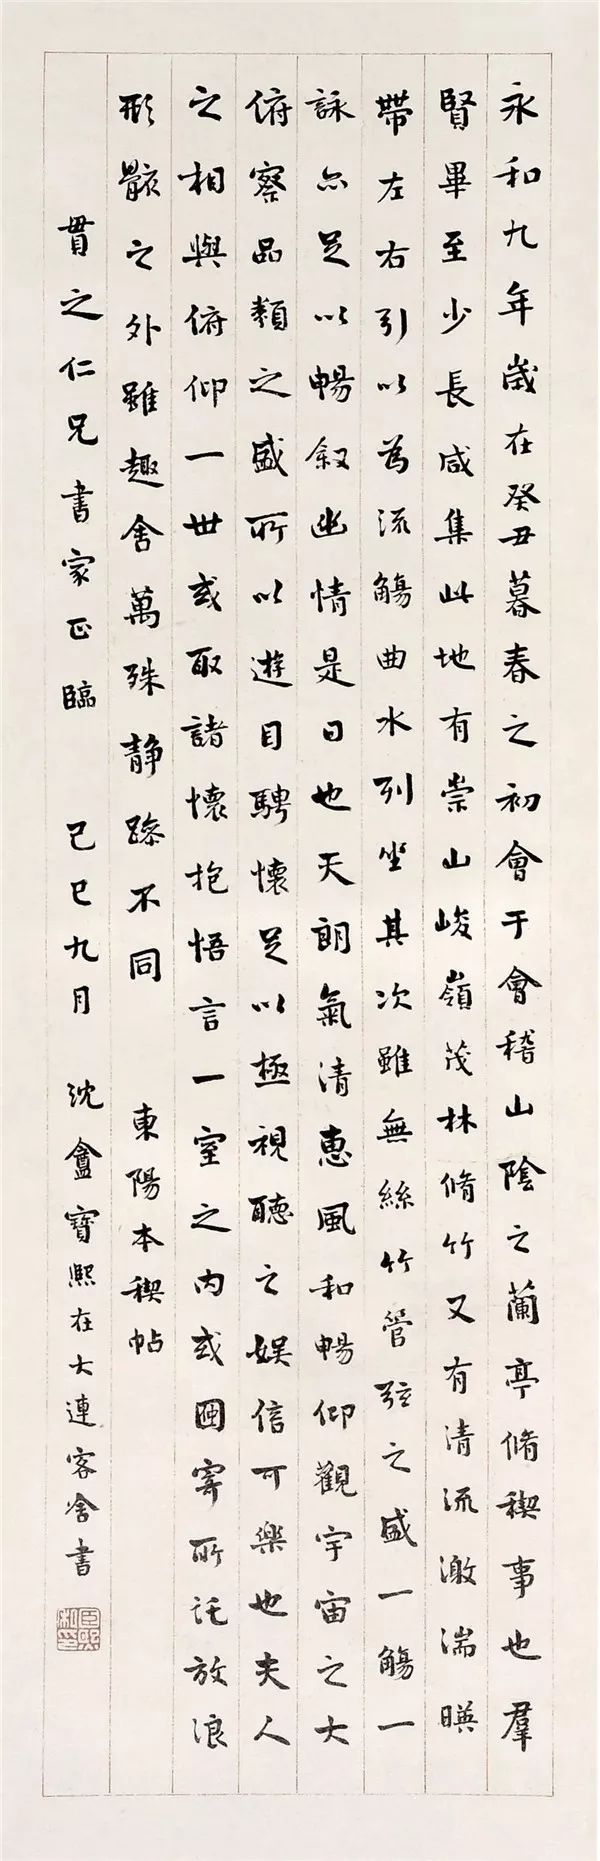 永和九年歲在癸丑暮春之初會于會稽山陰之蘭亭脩稧事也羣
賢畢至少長咸集此地有崇山峻嶺茂林脩竹又有清流激湍暎
帶左右引以為流觴曲水列坐其次雖無絲竹管弦之盛一觴一
詠亦足以暢叙幽情是日也天朗氣清惠風和暢仰觀宇宙之大
俯察品類之盛所以遊目騁懷足以極視聽之娛信可樂也夫人
之相與俯仰一世或取諸懷抱悟言一室之内或因寄所託放浪
形骸之外雖趣舍萬殊静躁不同 東陽本稧帖
貫之仁兄書家正臨 己巳九月 沈盦寶熙在大連客舍書